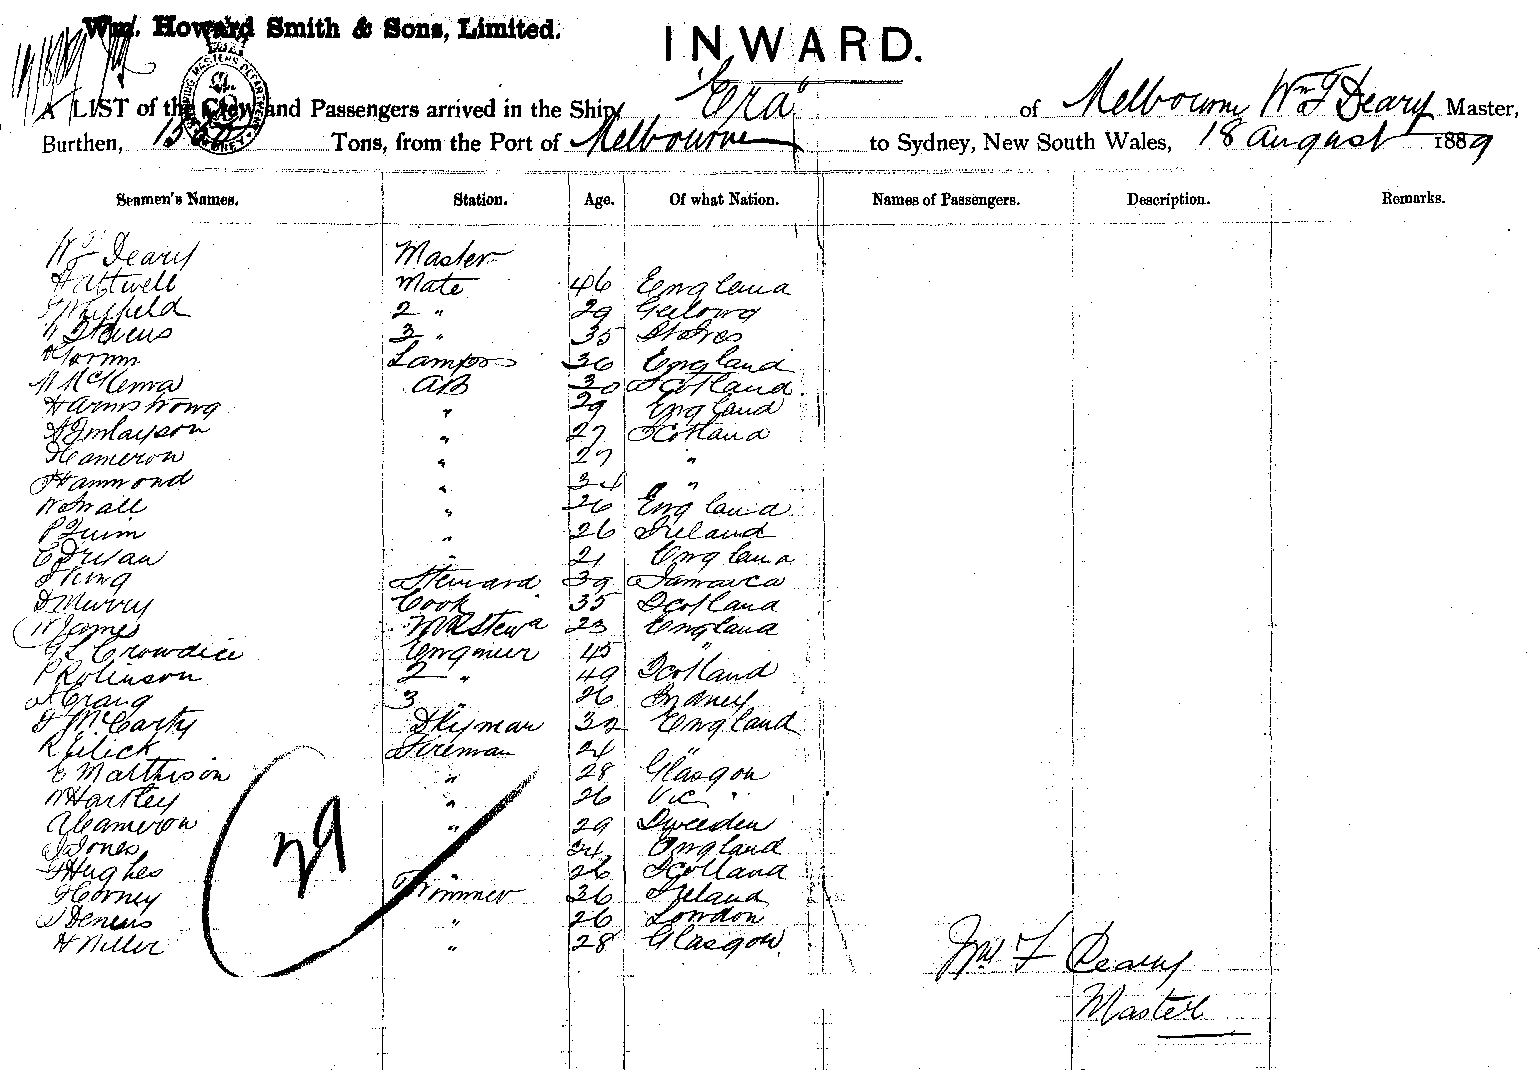 Wm. Howard Smith & Sons, Limited.
INWARD.
A LIST of the Crew and Passengers arrived in the Ship "Era" of Melbourne Wm F Deary Master,
Burthen, Tons, from the Port of Melbourne to Sydney, New South Wales, 18 August 1889
Seamen's Names. Station. Age. Of what Nation. Names of Passengers. Description. Remarks.
Wm F Deary Master
Mate 46 England
2 " 29 Geelong
3 " 35
Lamps 36 England
McKenna AB 30 Scotland
H Armstrong " 29 England
Finlayson " 27 Scotland
Cameron " 27 "
Hammond " 34 "
" 26 England
P Quinn " 26 Ireland
" 21 England
King Steward 39 Jamaica
D Murry Cook 35 Scotland
W James Stewd 23 England
G L Crowdice Engineer 45 "
P Robinson 2 " 49 Scotland
A Craig 3 " 26 Sydney
McCarthy Dkyman 32 England
Fireman 24 "
E Matthison " 28 Glasgow
W Hartley " 26 Vic
A Cameron " 29 Sweeden
Jones 34 England
Hughes " 26 Scotland
Corney Trimmer 36 Ireland
" 26 London
H Miller " 28 Glasgow
29
Wm F Deary
Master